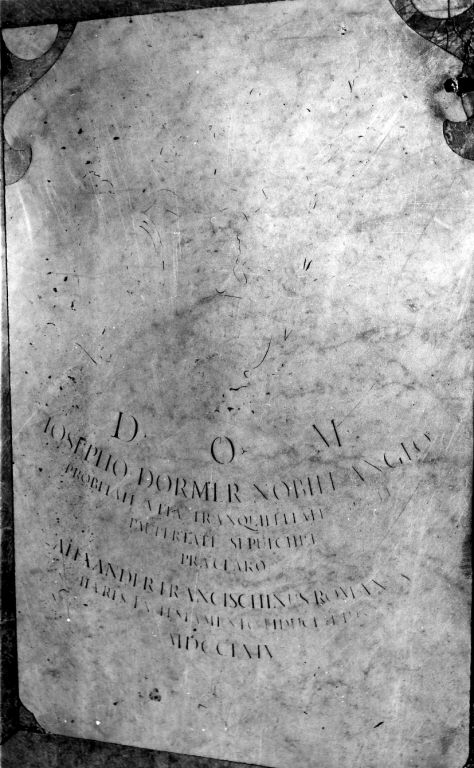 D. O. M.
IOSEPHO DORMER NOBILI ANGLO
PROBITATE VITÆ TRANQUILLITATE
PAUPERTATE SEPULCHRI
PRÆCLARO
ALEXANDER FRANCISCHINUS ROMANUS
HÆRES EX TESTAMENTO
MDCCLXIV